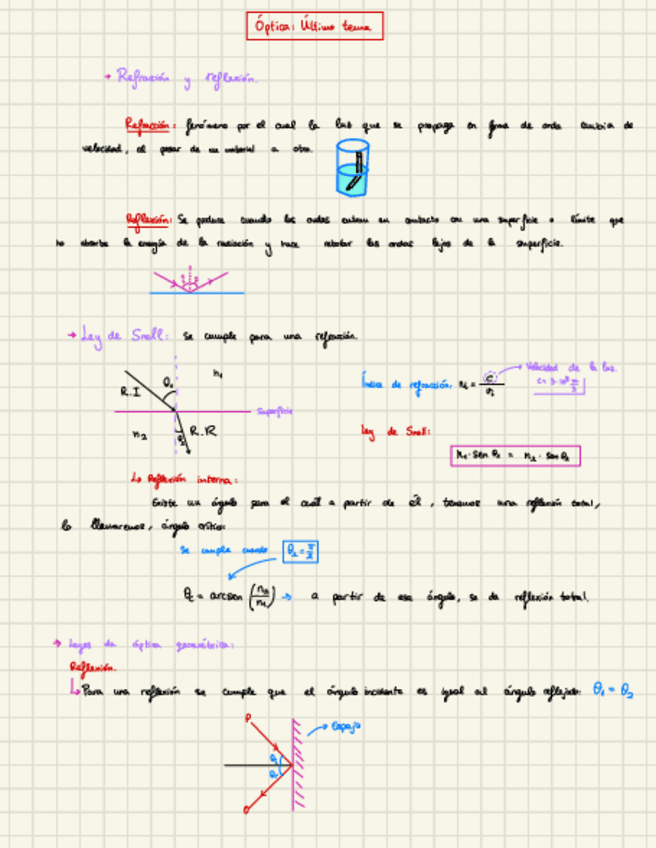 Óptica: Último tema
→ Refracción y reflexión.
Refracción: fenómeno por el cual la luz que se propaga en forma de onda cambia de
velocidad, al pasar de un material a otro.
Reflexión: Se produce cuando las ondas entran en contacto con una superficie o límite que
no absorbe la energía de la radiación y hace rebotar las ondas lejos de la superficie.
→ Ley de Snell: se cumple para una refracción.
R.I θ₁ n₁
Superficie
n₂ θ₂ R.R
Índice de refracción: n₁ = c/v₁ → Velocidad de la luz.
c = 3·10⁸ m/s
Ley de Snell:
n₁ · sen θ₁ = n₂ · sen θ₂
↳ Reflexión interna:
Existe un ángulo para el cual a partir de él, tenemos una reflexión total,
lo llamaremos, ángulo crítico
se cumple cuando θ₂ = π/2
θc = arcsen (n₂/n₁) → a partir de ese ángulo, se da reflexión total.
→ Leyes de óptica geométrica:
Reflexión.
↳ Para una reflexión se cumple que el ángulo incidente es igual al ángulo reflejado: θ₁ = θ₂
P
→ Espejo
θ₁